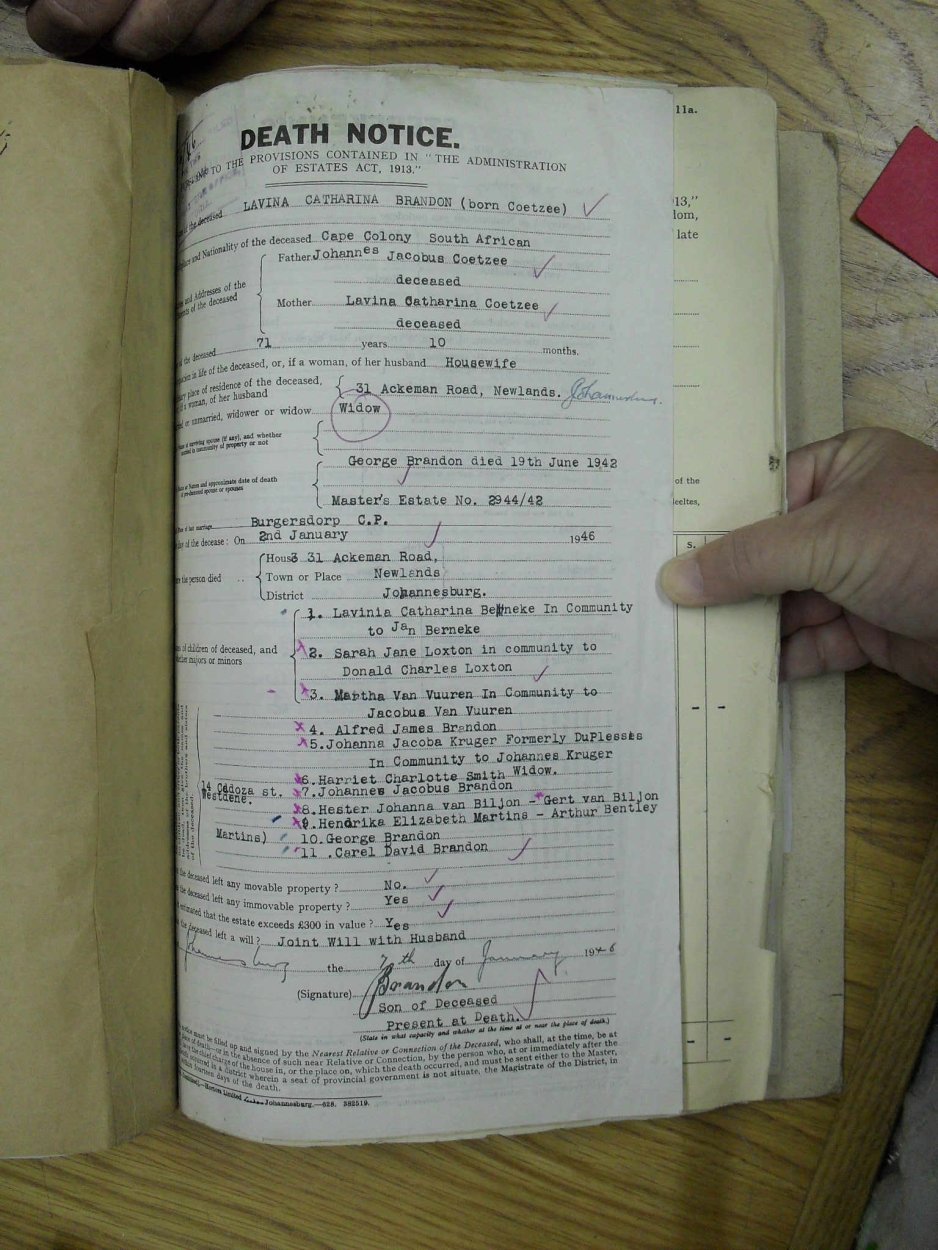 DEATH NOTICE.
TO THE PROVISIONS CONTAINED IN "THE ADMINISTRATION
OF ESTATES ACT, 1913."
of the deceased LAVINA CATHARINA BRANDON (born Coetzee)
and Nationality of the deceased Cape Colony South African
Father Johannes Jacobus Coetzee
deceased
and Addresses of the
of the deceased
Mother Lavina Catharina Coetzee
deceased
of the deceased 71 years 10 months.
in life of the deceased, or, if a woman, of her husband Housewife
place of residence of the deceased,
a woman, of her husband
31 Ackeman Road, Newlands. Johannesburg.
or unmarried, widower or widow Widow
of surviving spouse (if any), and whether
married in community of property or not
George Brandon died 19th June 1942
or Names and approximate date of death
of pre-deceased spouse or spouses
Master's Estate No. 2944/42
Place of last marriage Burgersdorp C.P.
of the decease: On 2nd January 1946
House 31 Ackeman Road,
the person died .. Town or Place Newlands
District Johannesburg.
1. Lavinia Catharina Berneke In Community
to Jan Berneke
of children of deceased, and
whether majors or minors
2. Sarah Jane Loxton in community to
Donald Charles Loxton
3. Martha Van Vuuren In Community to
Jacobus Van Vuuren
4. Alfred James Brandon
5. Johanna Jacoba Kruger Formerly DuPlesses
In Community to Johannes Kruger
6. Harriet Charlotte Smith Widow.
14 Cadoza st. 7. Johannes Jacobus Brandon
Westdene.
8. Hester Johanna van Biljon - Gert van Biljon
9. Hendrika Elizabeth Martins - Arthur Bentley
Martins) 10. George Brandon
11. Carel David Brandon
the deceased left any movable property? No.
the deceased left any immovable property? Yes
estimated that the estate exceeds £300 in value? Yes
the deceased left a will? Joint Will with Husband
Johannesburg the 7th day of January 1946
(Signature) Brandon
Son of Deceased
Present at Death.
(State in what capacity and whether at the time at or near the place of death.)
notice must be filled up and signed by the Nearest Relative or Connection of the Deceased, who shall, at the time, be at
place of death—or in the absence of such near Relative or Connection, by the person who, at or immediately after the
the chief charge of the house in, or the place on, which the death occurred, and must be sent either to the Master,
in a district wherein a seat of provincial government is not situate, the Magistrate of the District, in
fourteen days of the death.
Limited Johannesburg.—628. 382519.
11a.
13,"
dom,
late
of the
S.